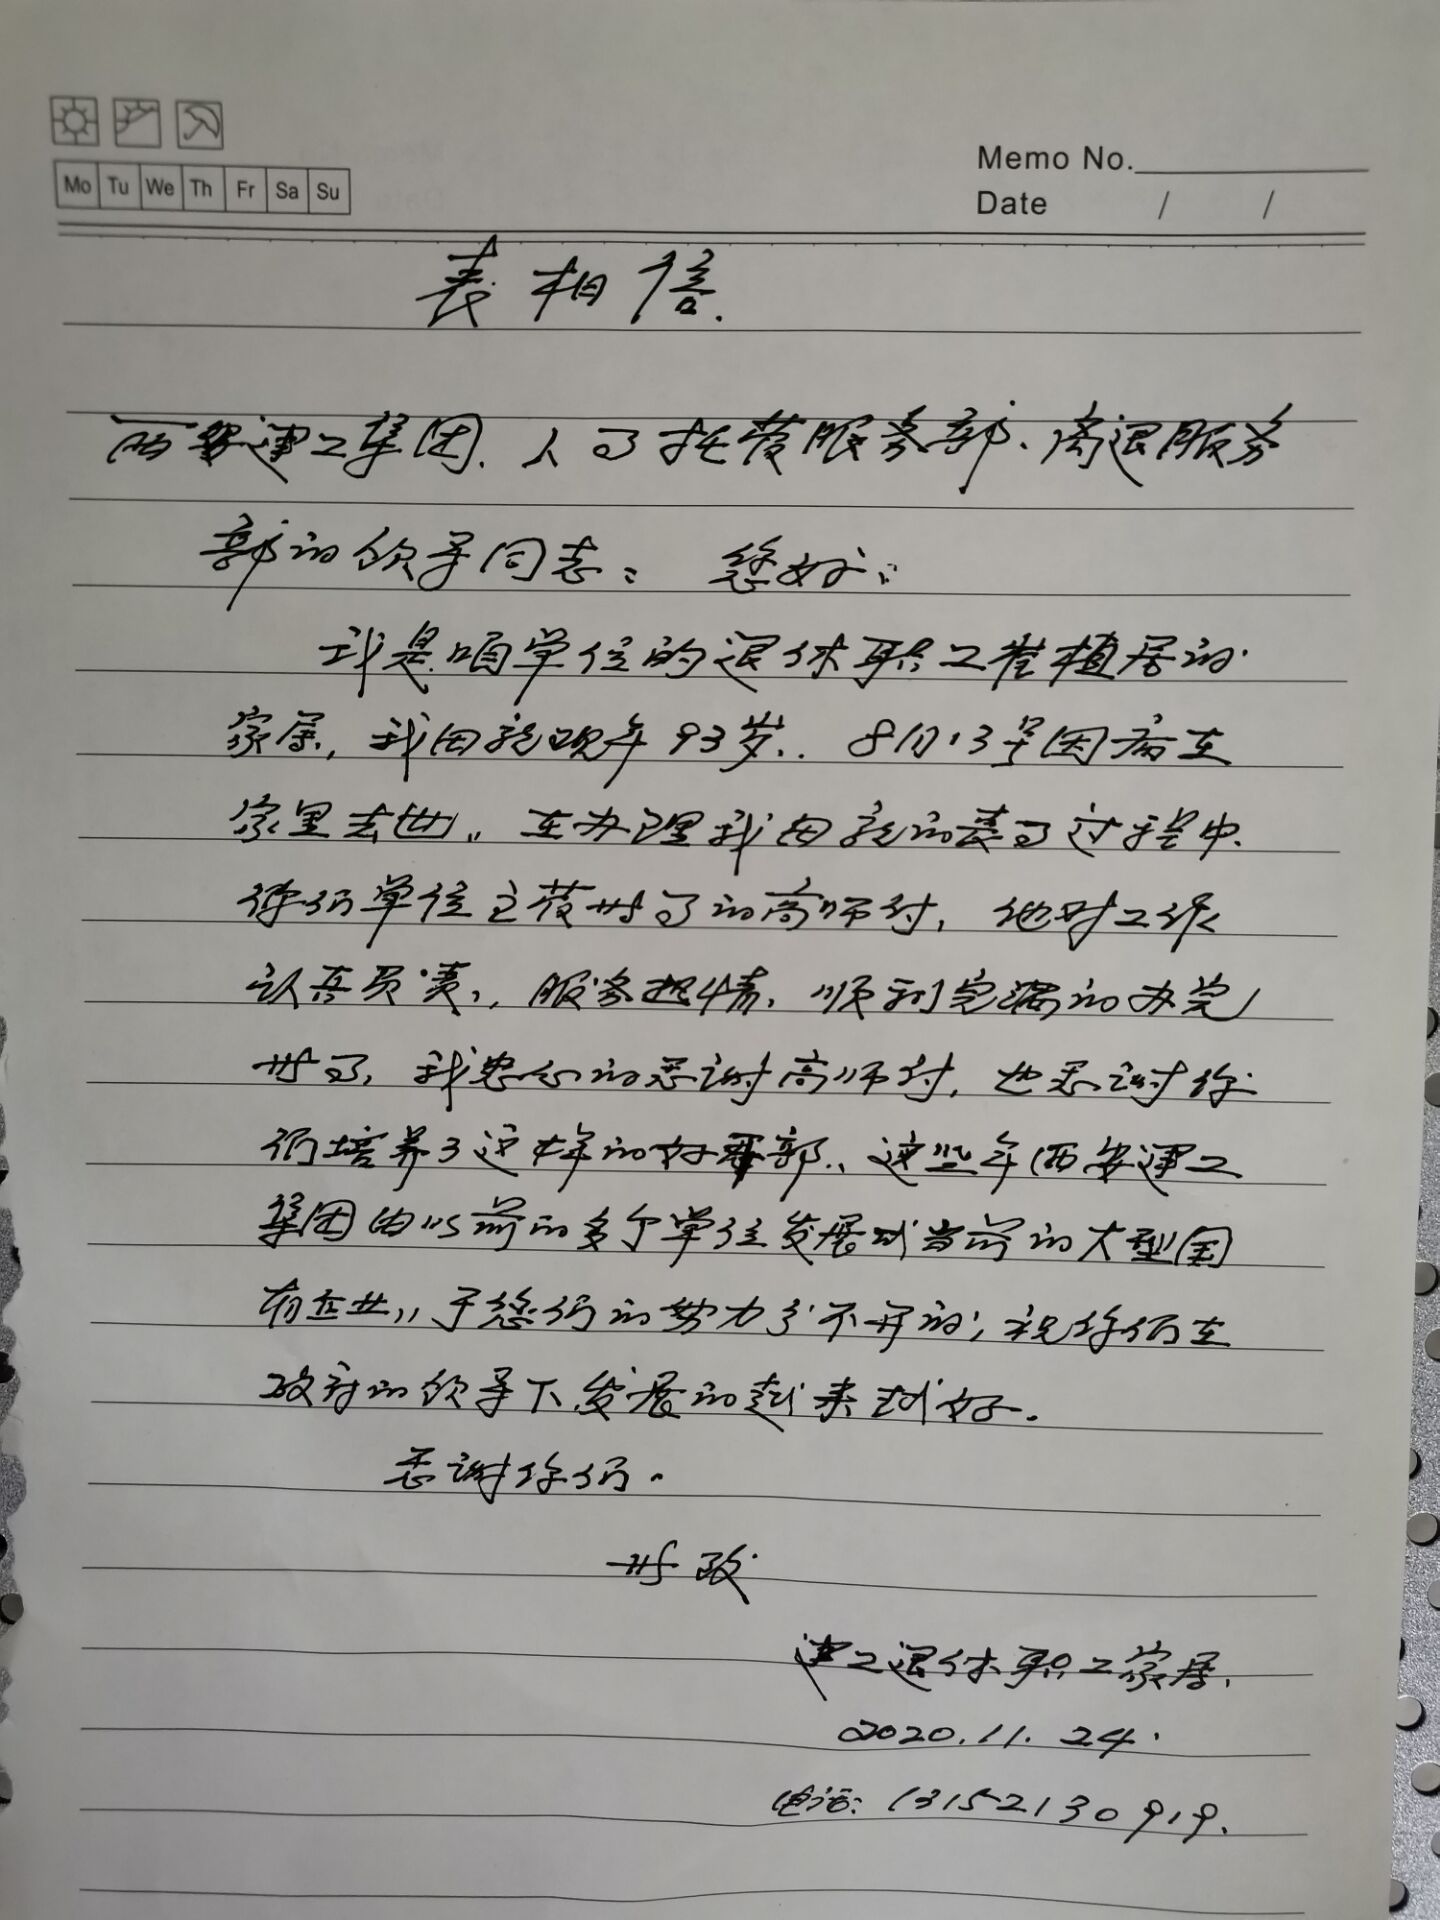 Mo Tu We Th Fr Sa Su
Memo No.
Date / /
表相信.
西安建工集团.人了托管服务部、离退服务
部的领导同志: 您好:
我是咱单位的退休职工崔植居的
家属,我母亲现年93岁.8月13号因病在
家里去世.在办理我母亲的丧了过程中.
你们单位主管丧了的高师付,他对工作
认真负责,服务热情,顺利完满的办完
丧了,我忠心的感谢高师付,也感谢你
们培养了这样的好干部.这些年西安建工
集团由以前的多个单位发展成当前的大型国
有企业,于您们的努力分不开的,祝你们在
政府的领导下,发展的越来越好.
感谢你们.
此致
建工退休职工家属.
2020.11.24.
电话:13152130919.